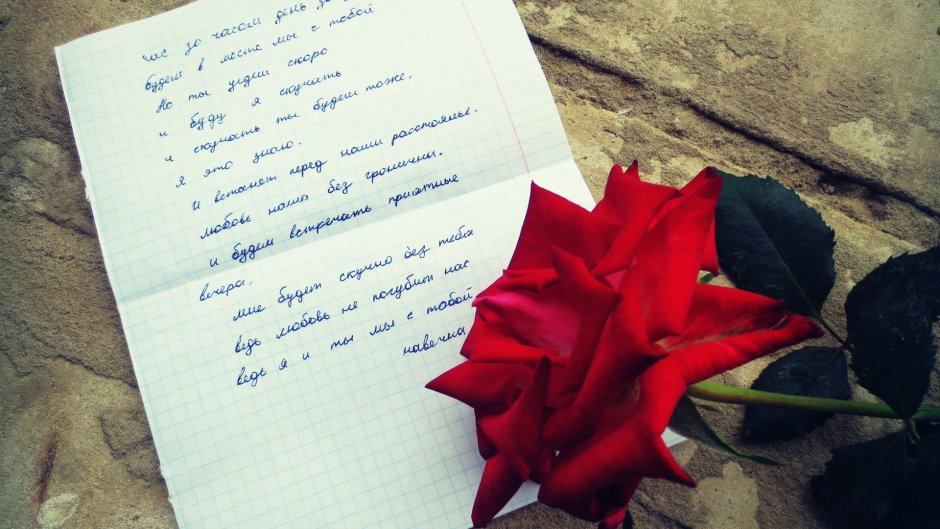 час за часом день за
будем в месте мы с тобой
Но ты уедиш скоро
и буду я скучать
я скучать ты будеш тоже,
я это знаю.
И встанет перед нами расстоянье.
любовь наша без границы.
и будем встречать приятные
вечера,
мне будет скучно без тебя
ведь любовь не погубит нас
ведь я и ты мы с тобой
навечна